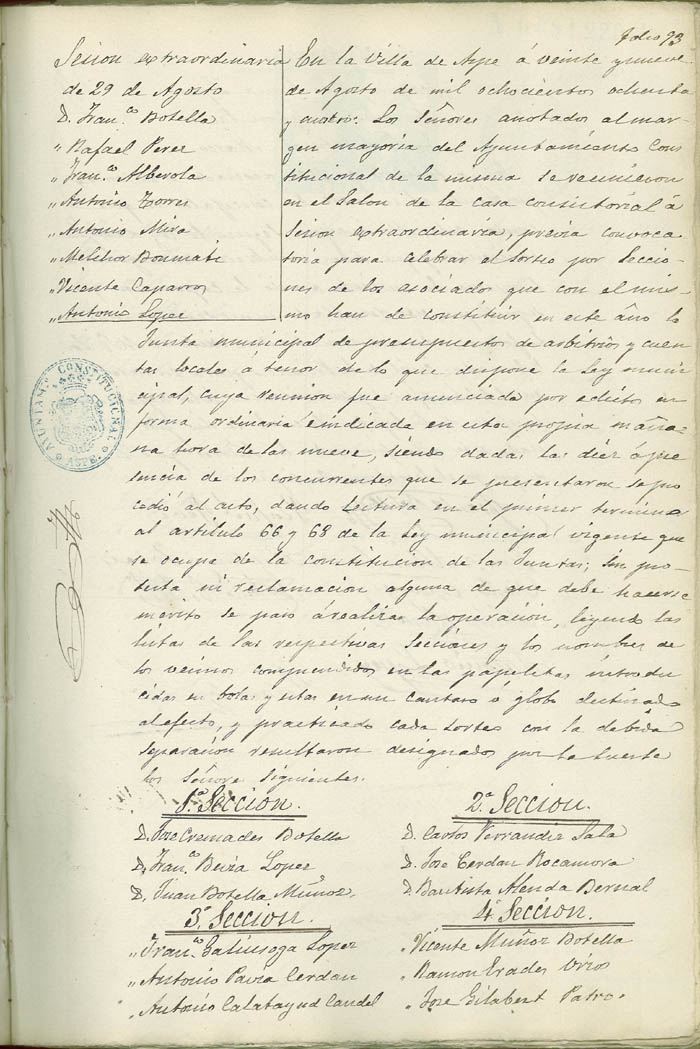 Folio 93
Sesion extraordinaria
de 29 de Agosto
D. Fran.co Botella
" Rafael Perez
" Fran.co Alberola
" Antonio Torres
" Antonio Mira
" Melchor Boumati
" Vicente Caparros
" Antonio Lopez
En la Villa de Aspe á veinte y nueve
de Agosto de mil ochocientos ochenta
y cuatro: Los Señores anotados al mar-
gen mayoria del Ayuntamiento Cons
titucional de la misma se reunieron
en el Salon de la casa consistorial á
Sesion extraordinaria, previa convoca
toria para celebrar el sorteo por Seccio-
nes de los asociados que con el mis-
mo han de constituir en este año la
Junta municipal de presupuestos de arbitrios y cuen
tas locales á tenor de lo que dispone la Ley muni
cipal, cuya reunion fue anunciada por edictos en
forma ordinaria é indicada en esta propia maña-
na hora de las nueve, siendo dadas las diez á pre
sencia de los concurrentes que se presentaron se pro
cedió al acto, dando lectura en el primer termino
al articulo 66 y 68 de la Ley municipal vigente que
se ocupa de la constitucion de las Juntas; sin pro-
testa ni reclamacion alguna de que debe hacerse
merito se paso á realizar la operación, leyendo las
listas de las respectivas Secciones y los nombres de
los vecinos comprendidos en las papeletas introdu
cidas en bolas y estas en un cantaro ó globo destinado
al efecto, y practicado cada sorteo con la debida
separación resultaron designados por la suerte
los Señores siguientes.
1.a Seccion.
D. Jose Cremades Botella
D. Fran.co Beria Lopez
D. Juan Botella Muñoz.
2.a Seccion.
D. Carlos Ferrandiz Sala
D. Jose Cerdan Rocamora
D. Bautista Alenda Bernal
3.a Seccion.
" Fran.co Galiusoga Lopez
" Antonio Pavia Cerdan
" Antonio Calatayud Candel
4.a Seccion.
" Vicente Muñoz Botella
" Ramon Erades Urios
" Jose Gilabert Patro.
AYUNTAM.TO CONSTITUCIONAL
ASPE.